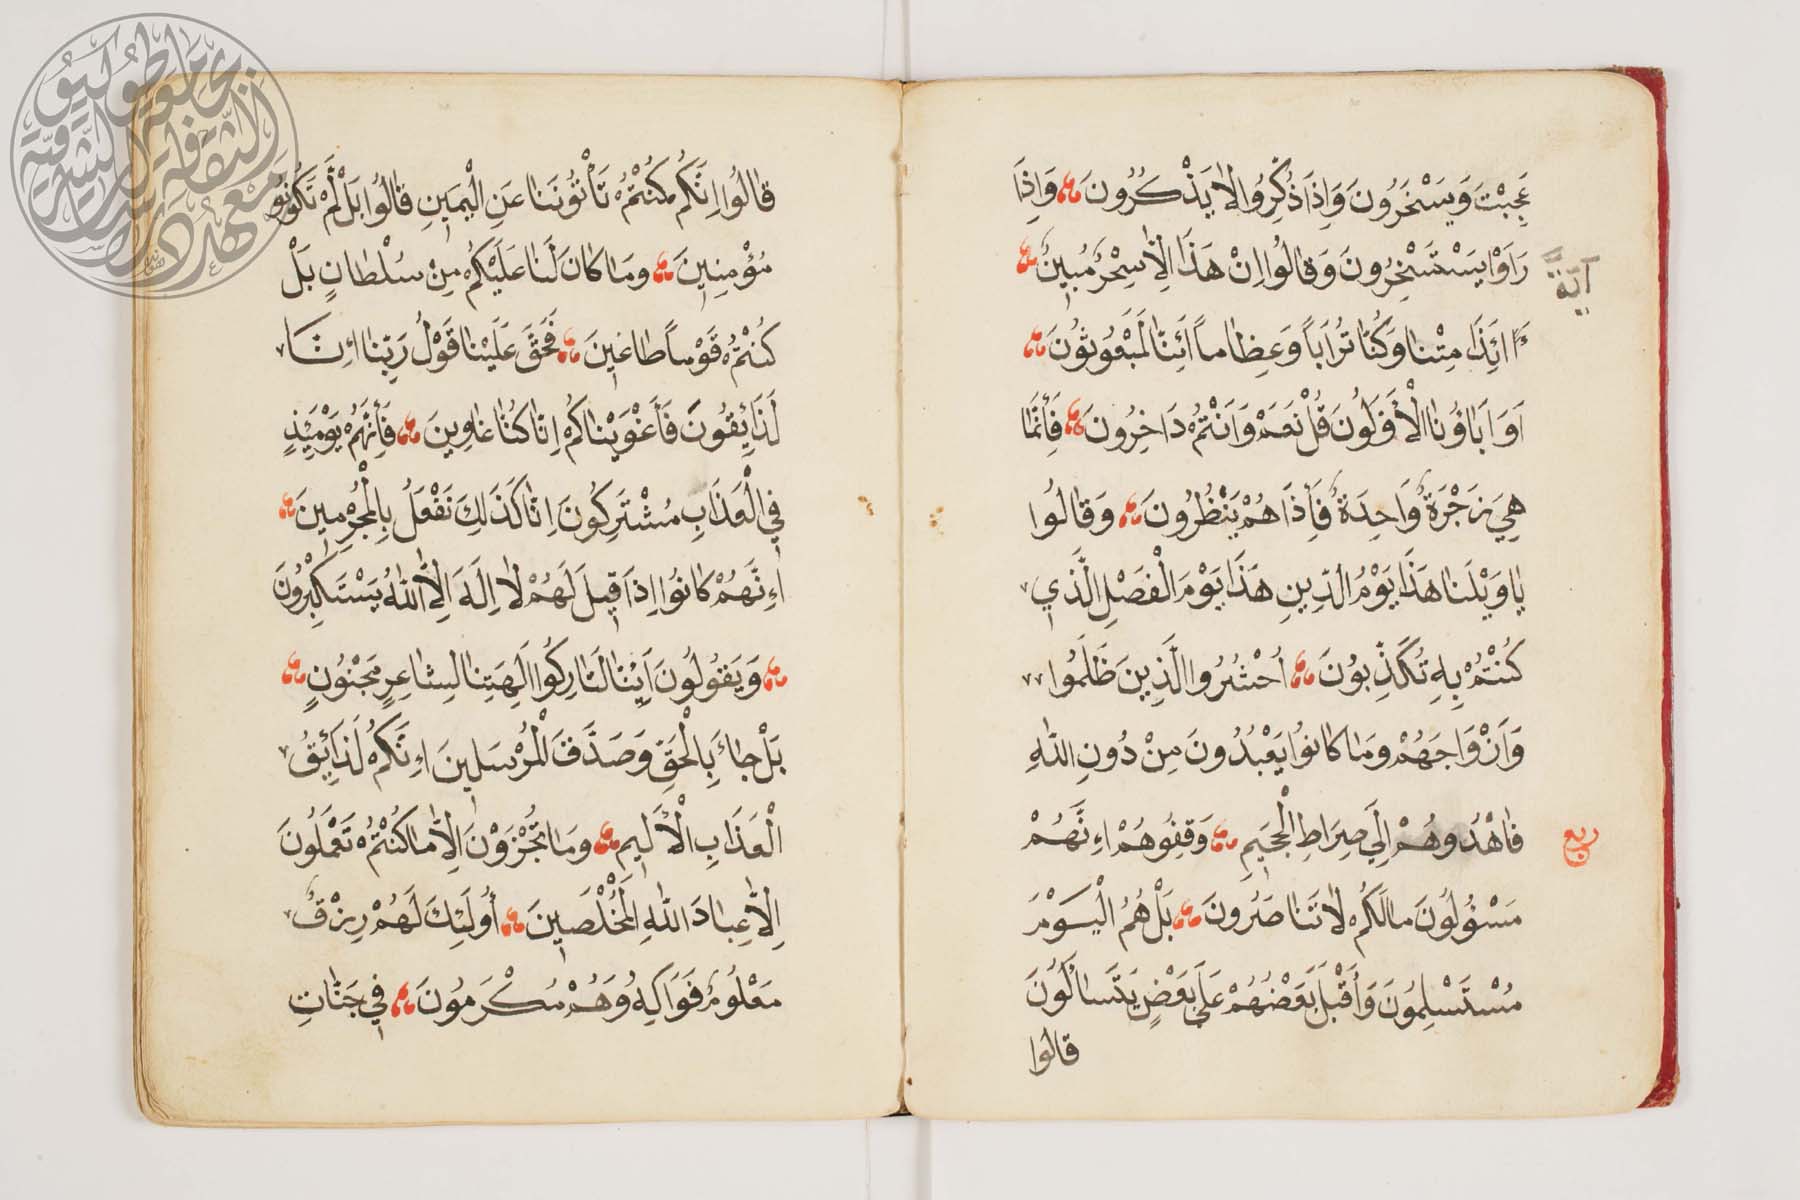 عَجِبْتَ وَيَسْخَرُونَ وَاِذَا ذُكِّرُوا لَا يَذْكُرُونَ وَاِذَا
رَاَوْا يَسْتَسْخِرُونَ وَقَالُوا اِنْ هَذَا اِلَّا سِحْرٌ مُبِينٌ
آيَةً
ءَاائِذَا مِتْنَا وَكُنَّا تُرَابًا وَعِظَامًا أَئِنَّا لَمَبْعُوثُونَ
اَوَ اَبَاؤُنَا الْأَوَّلُونَ قُلْ نَعَمْ وَاَنْتُمْ دَاخِرُونَ فَأِنَّمَا
هِيَ زَجْرَةٌ وَاحِدَةٌ فَأِذَا هُمْ يَنْظُرُونَ وَقَالُوا
يَا وَيْلَنَا هَذَا يَوْمُ الدِّينِ هَذَا يَوْمَ الْفَصْلِ الَّذِي
كُنْتُمْ بِهِ تُكَذِّبُونَ اُحْشُرُوا الَّذِينَ ظَلَمُوا
وَاَزْوَاجَهُمْ وَمَا كَانُوا يَعْبُدُونَ مِنْ دُونِ اللَّهِ
فَاهْدُوهُمْ اِلَى صِرَاطِ الْجَحِيمِ وَقِفُوهُمْ اِنَّهُمْ
ربع
مَسْؤُلُونَ مَالَكُمْ لَا تَنَاصَرُونَ بَلْ هُمُ الْيَوْمَ
مُسْتَسْلِمُونَ وَأَقْبَلَ بَعْضُهُمْ عَلَى بَعْضٍ يَتَسَائَلُونَ
قالوا
قَالُوا اِنَّكُمْ كُنْتُمْ تَأْتُونَنَا عَنِ الْيَمِينِ قَالُوا بَلْ لَمْ تَكُونُو
مُؤْمِنِينَ وَمَا كَانَ لَنَا عَلَيْكُمْ مِنْ سُلْطَانٍ بَلْ
كُنْتُمْ قَوْمًا طَاغِينَ فَحَقَّ عَلَيْنَا قَوْلُ رَبِّنَا اِنَّا
لَذَايِقُونَ فَأَغْوَيْنَاكُمْ اِنَّا كُنَّا غَاوِينَ فَأِنَّهُمْ يَوْمَئِذٍ
فِي الْعَذَابِ مُشْتَرِكُونَ اِنَّا كَذَلِكَ نَفْعَلُ بِالْمُجْرِمِينَ
اِنَّهُمْ كَانُوا اِذَا قِيلَ لَهُمْ لَا اِلَهَ اِلَّا اللَّهُ يَسْتَكْبِرُونَ
وَيَقُولُونَ اَئِنَّا لَتَارِكُوا اَلِهَتِنَا لِشَاعِرٍ مَجْنُونٍ
بَلْ جَاءَ بِالْحَقِّ وَصَدَّقَ الْمُرْسَلِينَ اِنَّكُمْ لَذَائِقُ
الْعَذَابِ الْأَلِيمِ وَمَا تُجْزَوْنَ اِلَّا مَا كُنْتُمْ تَعْمَلُونَ
اِلَّا عِبَادَ اللَّهِ الْمُخْلَصِينَ أُولَئِكَ لَهُمْ رِزْقٌ
مَعْلُومٌ فَوَاكِهُ وَهُمْ مُكْرَمُونَ فِي جَنَّاتِ